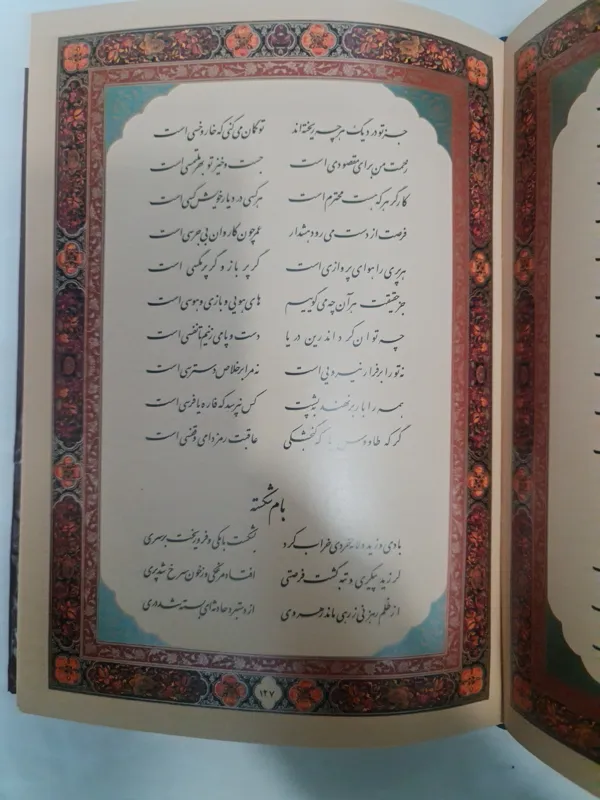 جز تو در دیگ هر چه ریخته‌اند تو گمان می‌کنی که خار و خسی است
زحمت من برای مقصودی است جست و خیز تو بهر ملتمسی است
کارگر هر که هست محترم است هر کسی در دیار خویش کسی است
فرصت از دست می‌رود هشدار عمر چون کاروان بی جرسی است
هر پری را هوای پروازی است گر پر باز و گر پر مگسی است
جز حقیقت هر آن چه می‌گوییم های هویی و بازی و هوسی است
چه توان کرد اندرین دریا دست و پا می‌زنیم تا نفسی است
نه تو را بر فرار نیرویی است نه مرا بر خلاص دسترسی است
همه را بار بر نهند به پشت کس نپرسد که فاره یا فرسی است
گر که طاووس یا که گنجشکی عاقبت رمز دامی و قفسی است
بام شکسته
بادی وزید و لانه خردی خراب کرد بشکست بامکی و فرو ریخت بر سری
لرزید پیکری و تبه گشت فرصتی افتاد مرغکی و ز خون سرخ شد پری
از ظلم رهزنی ز رهی ماند رهروی از دستبرد حادثه‌ای بسته شد دری
۱۲۷